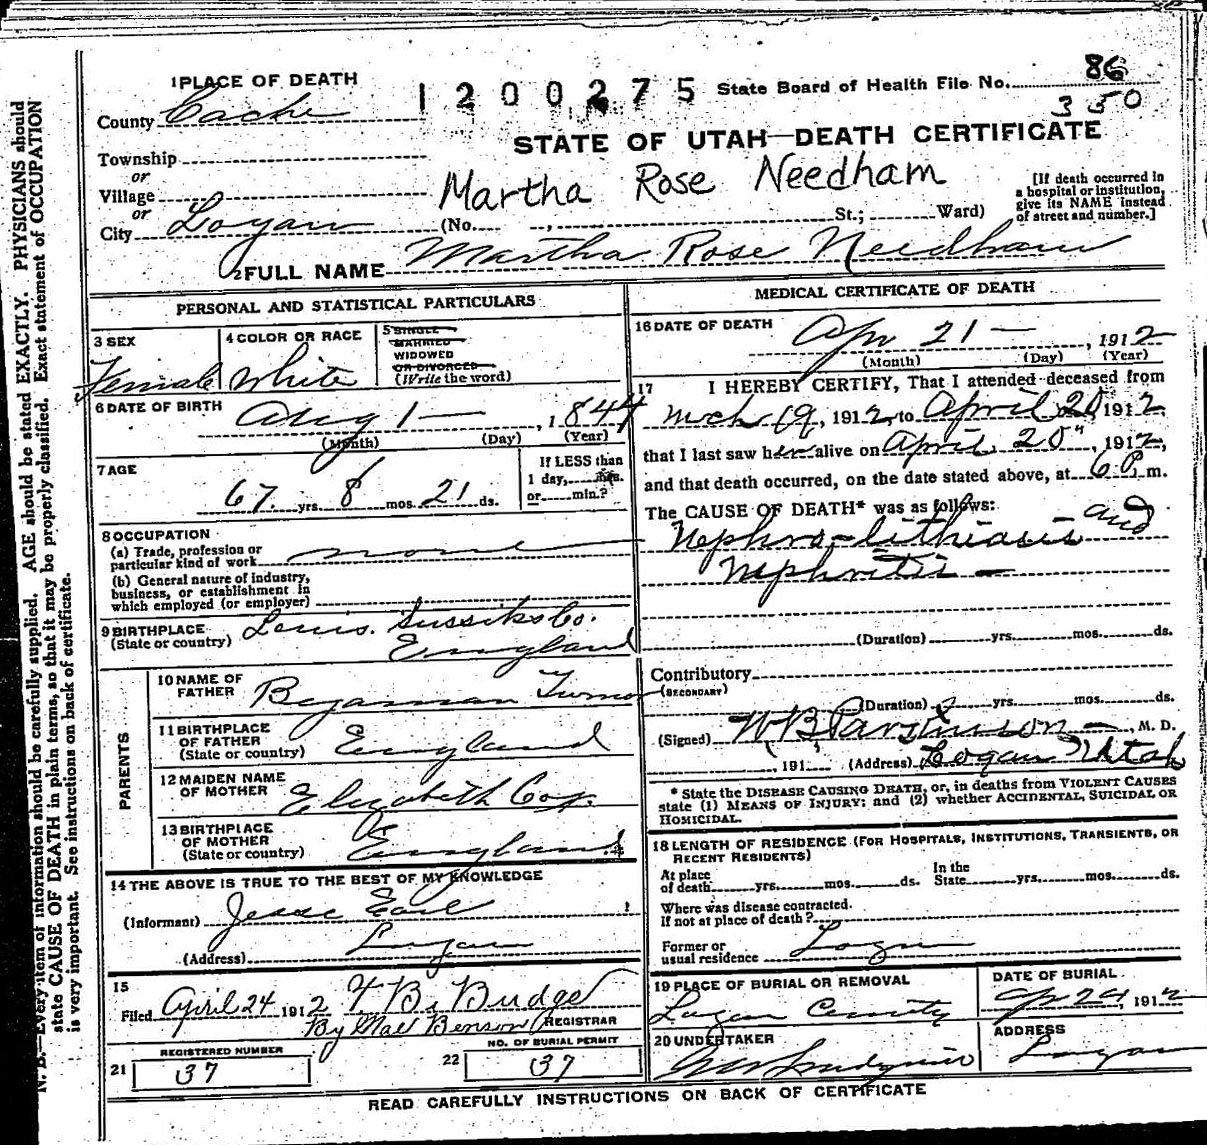 1 PLACE OF DEATH
1200275
State Board of Health File No. 86
350
County Cache
STATE OF UTAH—DEATH CERTIFICATE
Township
or
Village
Martha Rose Needham
[If death occurred in
a hospital or institution,
give its NAME instead
of street and number.]
or
City Logan (No. , St.; Ward)
2 FULL NAME Martha Rose Needham
PERSONAL AND STATISTICAL PARTICULARS
3 SEX
Female
4 COLOR OR RACE
White
5 SINGLE
MARRIED
WIDOWED
OR DIVORCED
(Write the word)
6 DATE OF BIRTH
Aug 1 — , 1844
(Month) (Day) (Year)
7 AGE
67 yrs. 8 mos. 21 ds.
If LESS than
1 day, hrs.
or min.?
8 OCCUPATION
(a) Trade, profession or
particular kind of work none
(b) General nature of industry,
business, or establishment in
which employed (or employer)
9 BIRTHPLACE
(State or country) Louis. Sussiks Co.
England
PARENTS
10 NAME OF
FATHER Begaman Turnor
11 BIRTHPLACE
OF FATHER
(State or country) England
12 MAIDEN NAME
OF MOTHER Elizabeth Cox
13 BIRTHPLACE
OF MOTHER
(State or country) England
14 THE ABOVE IS TRUE TO THE BEST OF MY KNOWLEDGE
(Informant) Jesse Earl
(Address) Logan
15
Filed April 24 1912 T B. Budge
By Mae Benson REGISTRAR
REGISTERED NUMBER
21 37
NO. OF BURIAL PERMIT
22 37
MEDICAL CERTIFICATE OF DEATH
16 DATE OF DEATH
Apr 21 — , 1912
(Month) (Day) (Year)
17 I HEREBY CERTIFY, That I attended deceased from
Mch 19, 1912, to April 20 1912,
that I last saw her alive on April 20", 1912,
and that death occurred, on the date stated above, at 6 P. m.
The CAUSE OF DEATH* was as follows:
Nephro-lithiasis and
Nephritis —
(Duration) yrs. mos. ds.
Contributory
(SECONDARY)
(Duration) yrs. mos. ds.
(Signed) W B Parkinson — , M. D.
, 191 (Address) Logan Utah
* State the DISEASE CAUSING DEATH, or, in deaths from VIOLENT CAUSES
state (1) MEANS OF INJURY; and (2) whether ACCIDENTAL, SUICIDAL, OR
HOMICIDAL.
18 LENGTH OF RESIDENCE (FOR HOSPITALS, INSTITUTIONS, TRANSIENTS, OR
RECENT RESIDENTS)
At place
of death yrs. mos. ds.
In the
State yrs. mos. ds.
Where was disease contracted.
If not at place of death?
Former or
usual residence Logan
19 PLACE OF BURIAL OR REMOVAL
Logan
DATE OF BURIAL
Apr 24, 1912
20 UNDERTAKER
ADDRESS
Logan
READ CAREFULLY INSTRUCTIONS ON BACK OF CERTIFICATE
N. B.—Every item of information should be carefully supplied. AGE should be stated EXACTLY. PHYSICIANS should
state CAUSE OF DEATH in plain terms, so that it may be properly classified. Exact statement of OCCUPATION
is very important. See instructions on back of certificate.